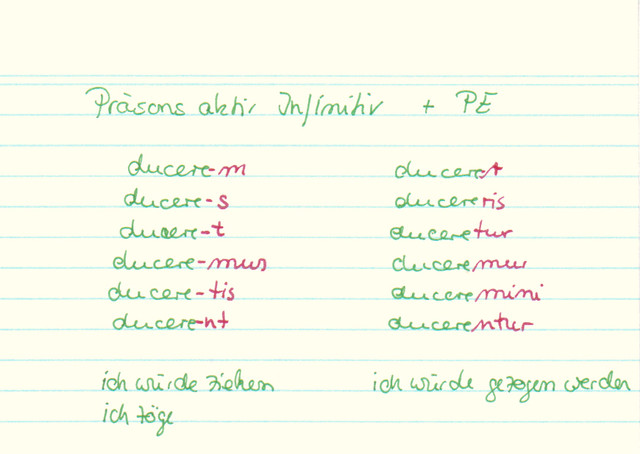 Präsens aktiv Infinitiv + PE
ducere-m ducerer
ducere-s ducereris
ducere-t duceretur
ducere-mus duceremur
ducere-tis duceremini
ducere-nt ducerentur
ich würde ziehen ich würde gezogen werden
ich zöge